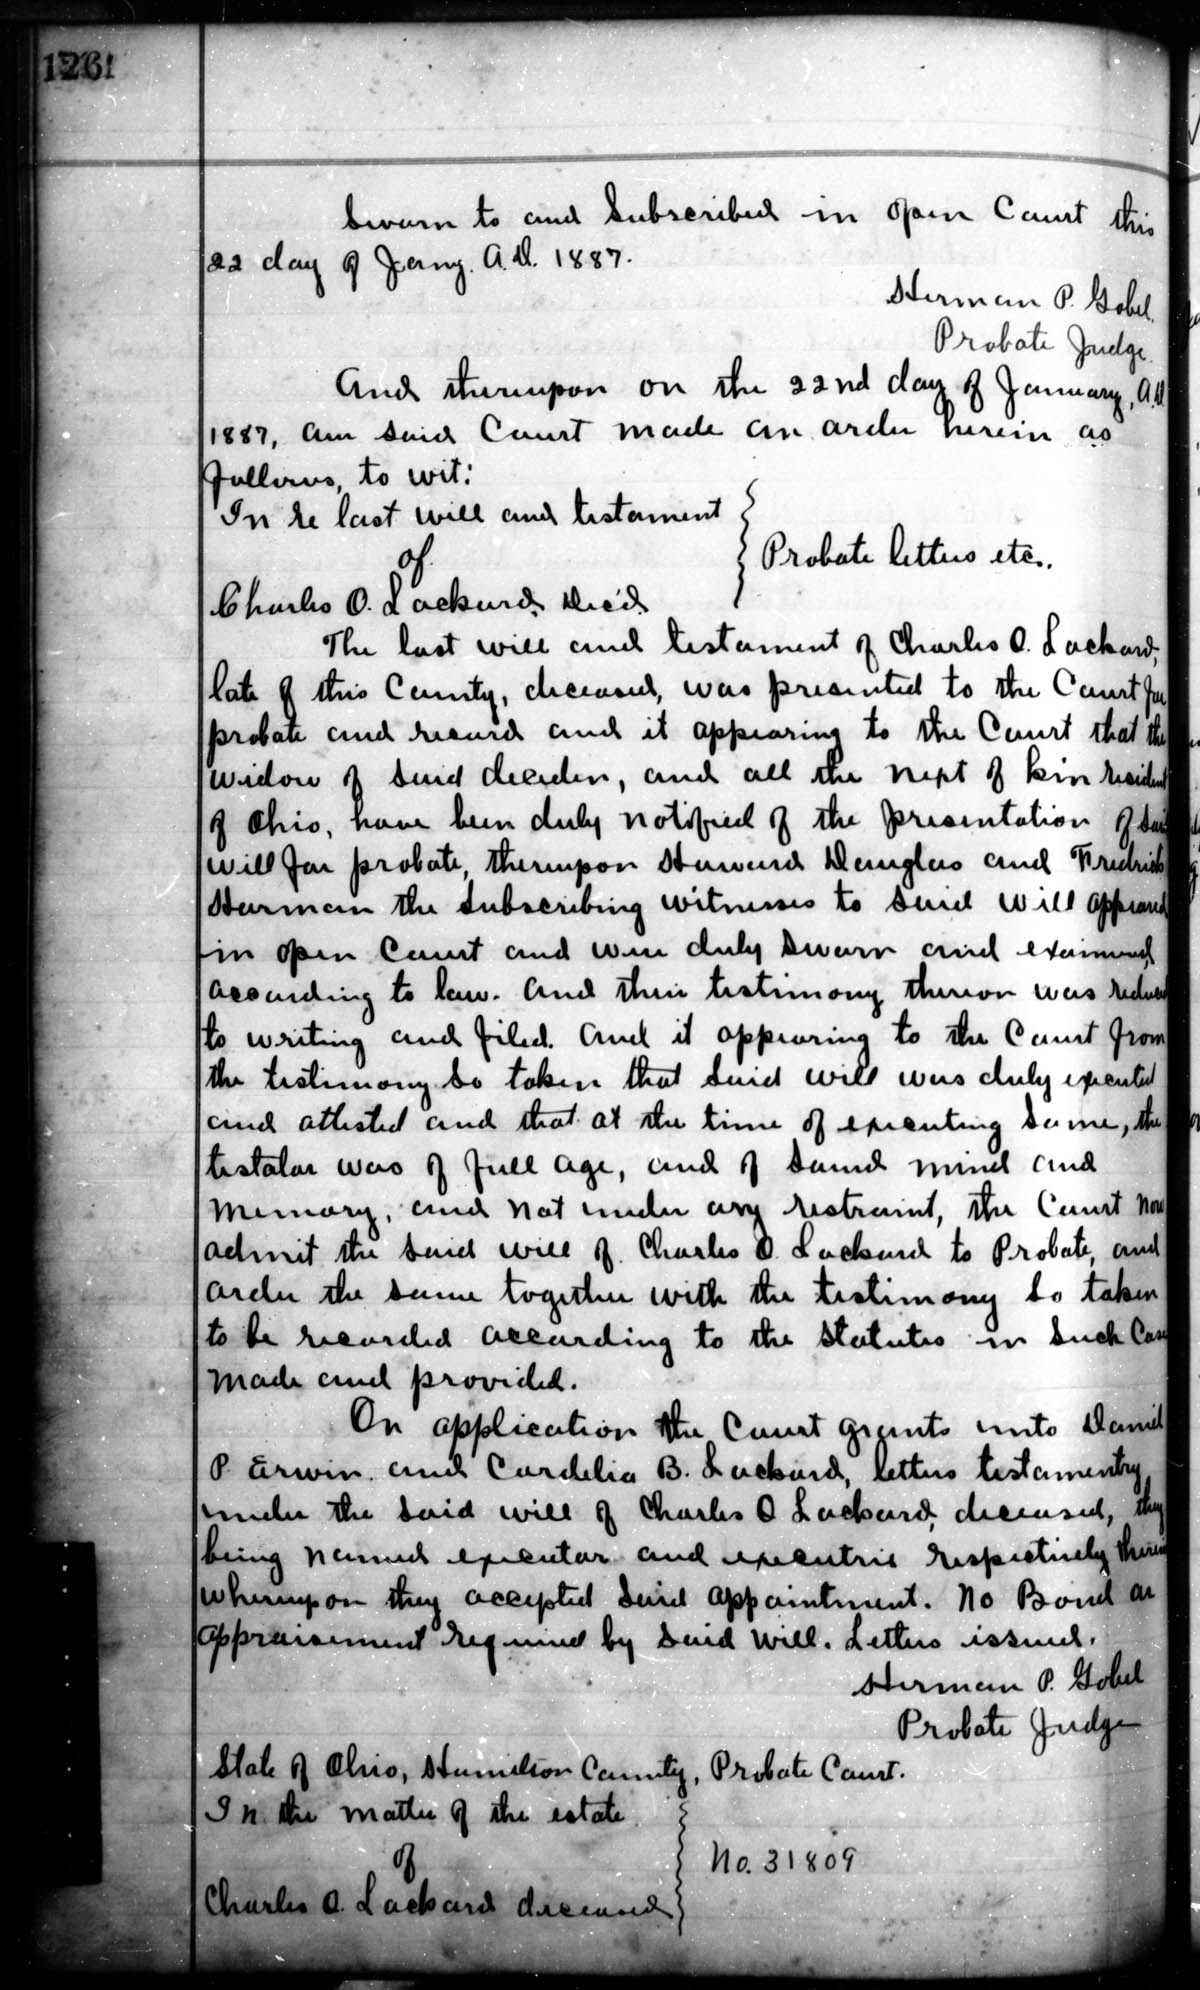 126
Sworn to and Subscribed in open Court this
22 day of Jany. A.D. 1887.
Herman P. Gobel.
Probate Judge.
And thereupon on the 22nd day of January, A.D
1887, said Court made an order herein as
follows, to wit:
In re last will and testament
of
Probate letters etc.
Charles O. Lockard, Dec'd.
The last will and testament of Charles O. Lockard,
late of this County, deceased, was presented to the Court for
probate and record and it appearing to the Court that the
widow of said deceden, and all the next of kin resident
of Ohio, have been duly notified of the presentation of said
will for probate, thereupon Howard Douglas and Fredrick
Harman the subscribing witnesses to said will appeared
in open Court and were duly sworn and examined,
according to law. And their testimony thereon was reduced
to writing and filed. And it appearing to the Court from
the testimony so taken that said will was duly executed
and attested and that at the time of executing same, the
testator was of full age, and of sound mind and
memory, and not under any restraint, the Court now
admit the said will of Charles O. Lockard to Probate, and
order the same together with the testimony so taken
to be recorded according to the statutes in such Case
made and provided.
On application the Court grants unto Daniel
P. Erwin and Cordelia B. Lockard, letters testamentry
under the said will of Charles O Lockard, deceased, they
being named executor and executrix respectively therein
whereupon they accepted said appointment. No Bond or
appraisement required by said will. Letters issued.
Herman P. Gobel
Probate Judge
State of Ohio, Hamilton County, Probate Court.
In the matter of the estate
of
No. 31809
Charles O. Lockard deceased